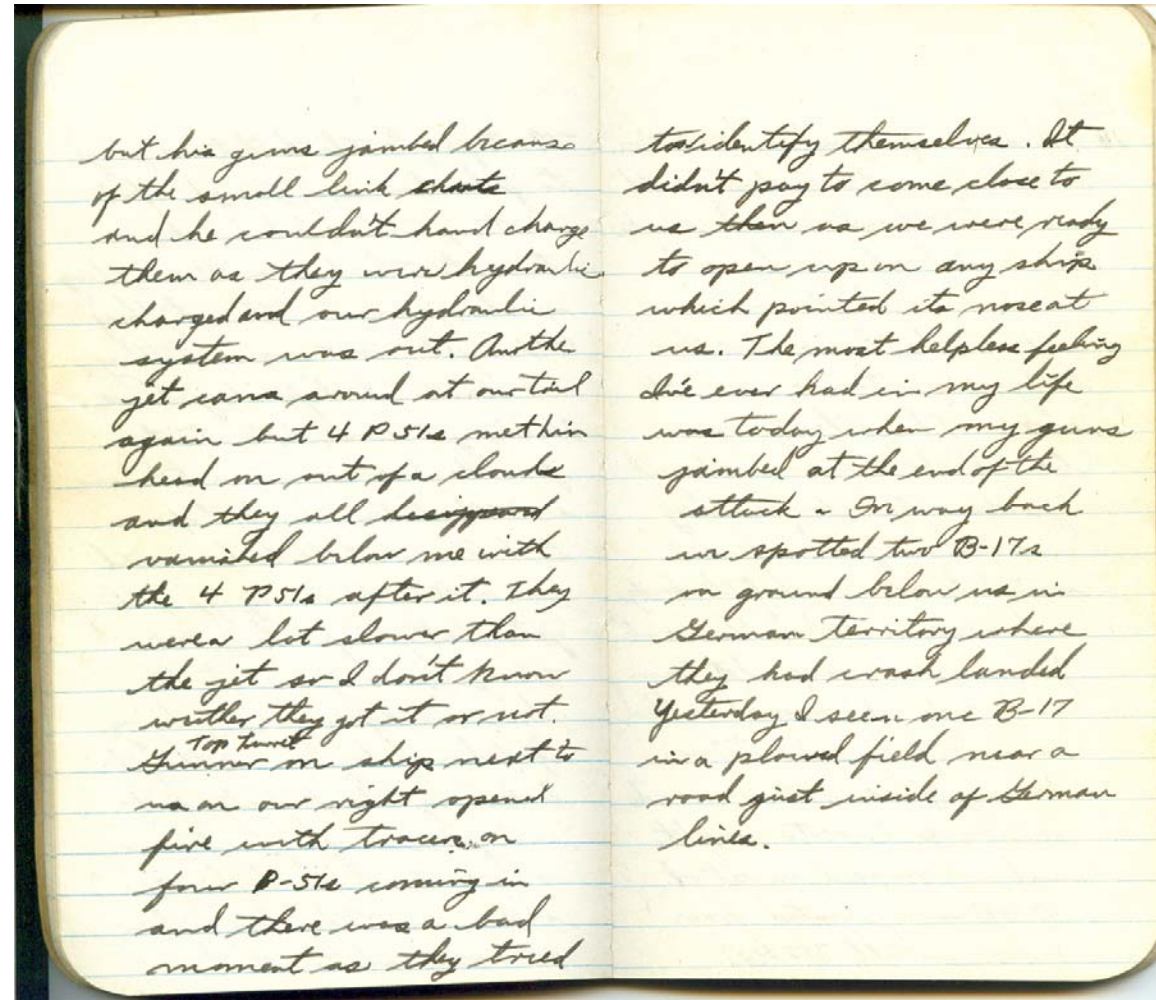 but his guns jambed because
of the small link chute
and he couldn't hand charge
them as they were hydraulic
charged and our hydraulic
system was out. Another
jet came around at our tail
again but 4 P51s met him
head on out of a clouds
and they all
vanished below me with
the 4 P51s after it. They
were a lot slower than
the jet so I don't know
wether they got it or not.
Top turret
Gunner on ship next to
us on our right opened
fire with tracers on
four P-51s coming in
and there was a bad
moment as they tried
to identify themselves. It
didn't pay to come close to
us then as we were ready
to open up on any ship
which pointed its nose at
us. The most helpless feeling
I've ever had in my life
was today when my guns
jambed at the end of the
attack. On way back
we spotted two B-17s
on ground below us in
German Territory where
they had crash landed
Yesterday I seen one B-17
in a plowed field near a
road just inside of German
lines.